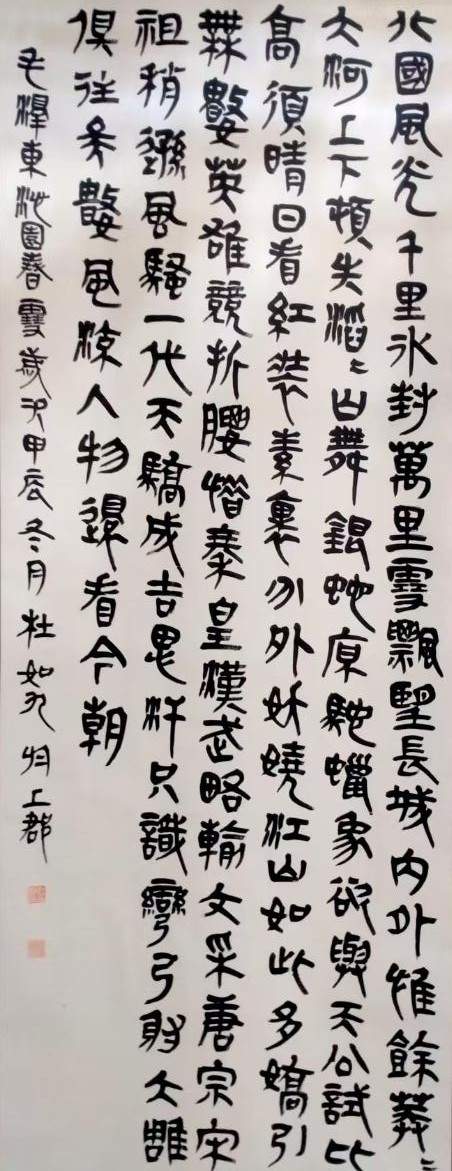 北國風光千里冰封萬里雪飄望長城內外惟餘莽〻
大河上下頓失滔〻山舞銀蛇原馳蠟象欲與天公試比
高須晴日看紅裝素裹分外妖嬈江山如此多嬌引
無數英雄競折腰惜秦皇漢武略輸文采唐宗宋
祖稍遜風騷一代天驕成吉思汗只識彎弓射大雕
俱往矣數風流人物還看今朝
毛澤東沁園春雪歲次甲辰冬月杜如上郡